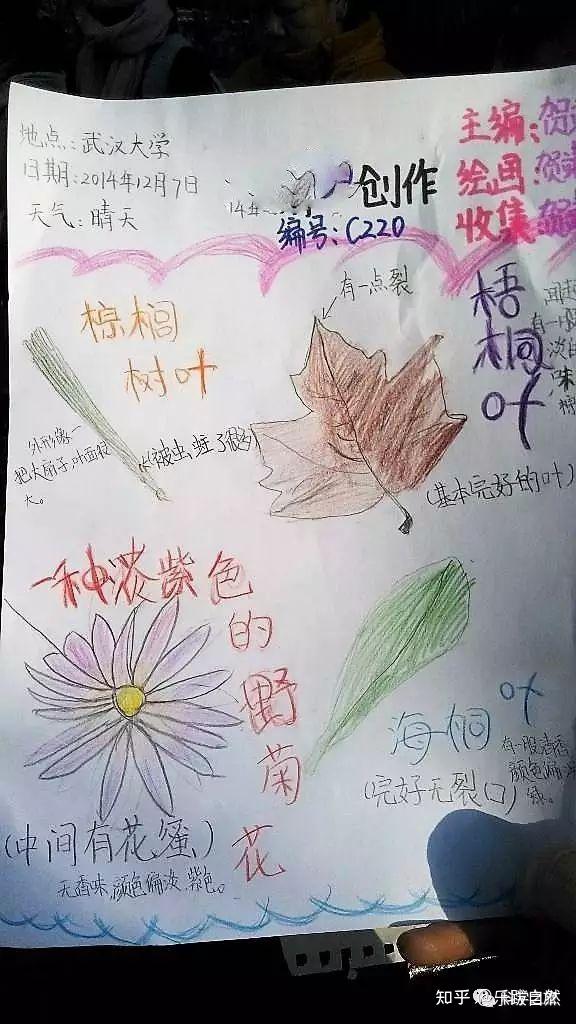 地点:武汉大学
日期:2014年12月7日
天气:晴天
14年
创作
编号:C220
主编:贺
绘画:贺
收集:贺
棕榈
树叶
外形像一
把大扇子,叶面很
大。
有一点裂
被虫蛀了很多
梧
桐
叶
有一股
淡
味
(基本完好的叶)
一种淡紫色
的
野
菊
花
(中间有花蜜)
无香味,颜色偏淡,紫色。
海桐叶
有一股清香
颜色偏
绿。
(完好无裂口)
知乎 @乐溪自然